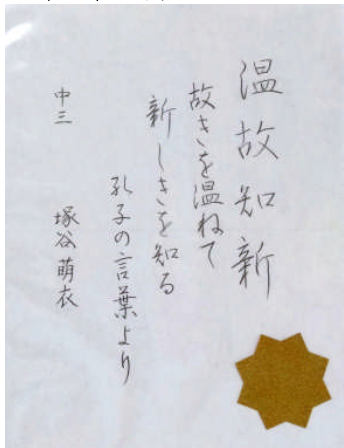 温故知新
故きを温ねて
新しきを知る
孔子の言葉より
中三 塚谷萌衣